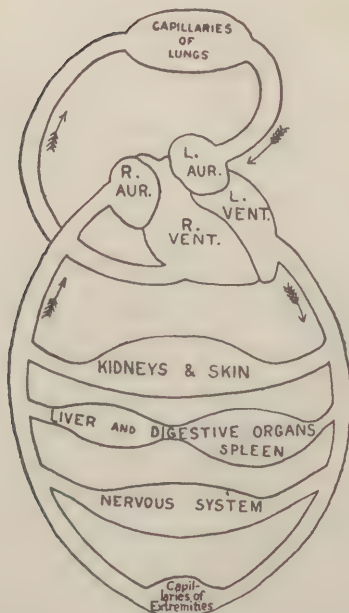 CAPILLARIES
OF
LUNGS
L.
AUR.
R.
AUR.
L.
VENT.
R.
VENT.
KIDNEYS & SKIN
LIVER AND DIGESTIVE ORGANS
SPLEEN
NERVOUS SYSTEM
Capil-
laries of
Extremities